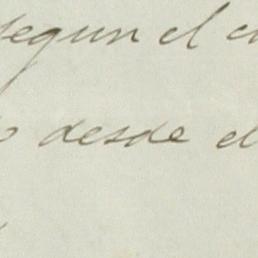 segun el
desde el